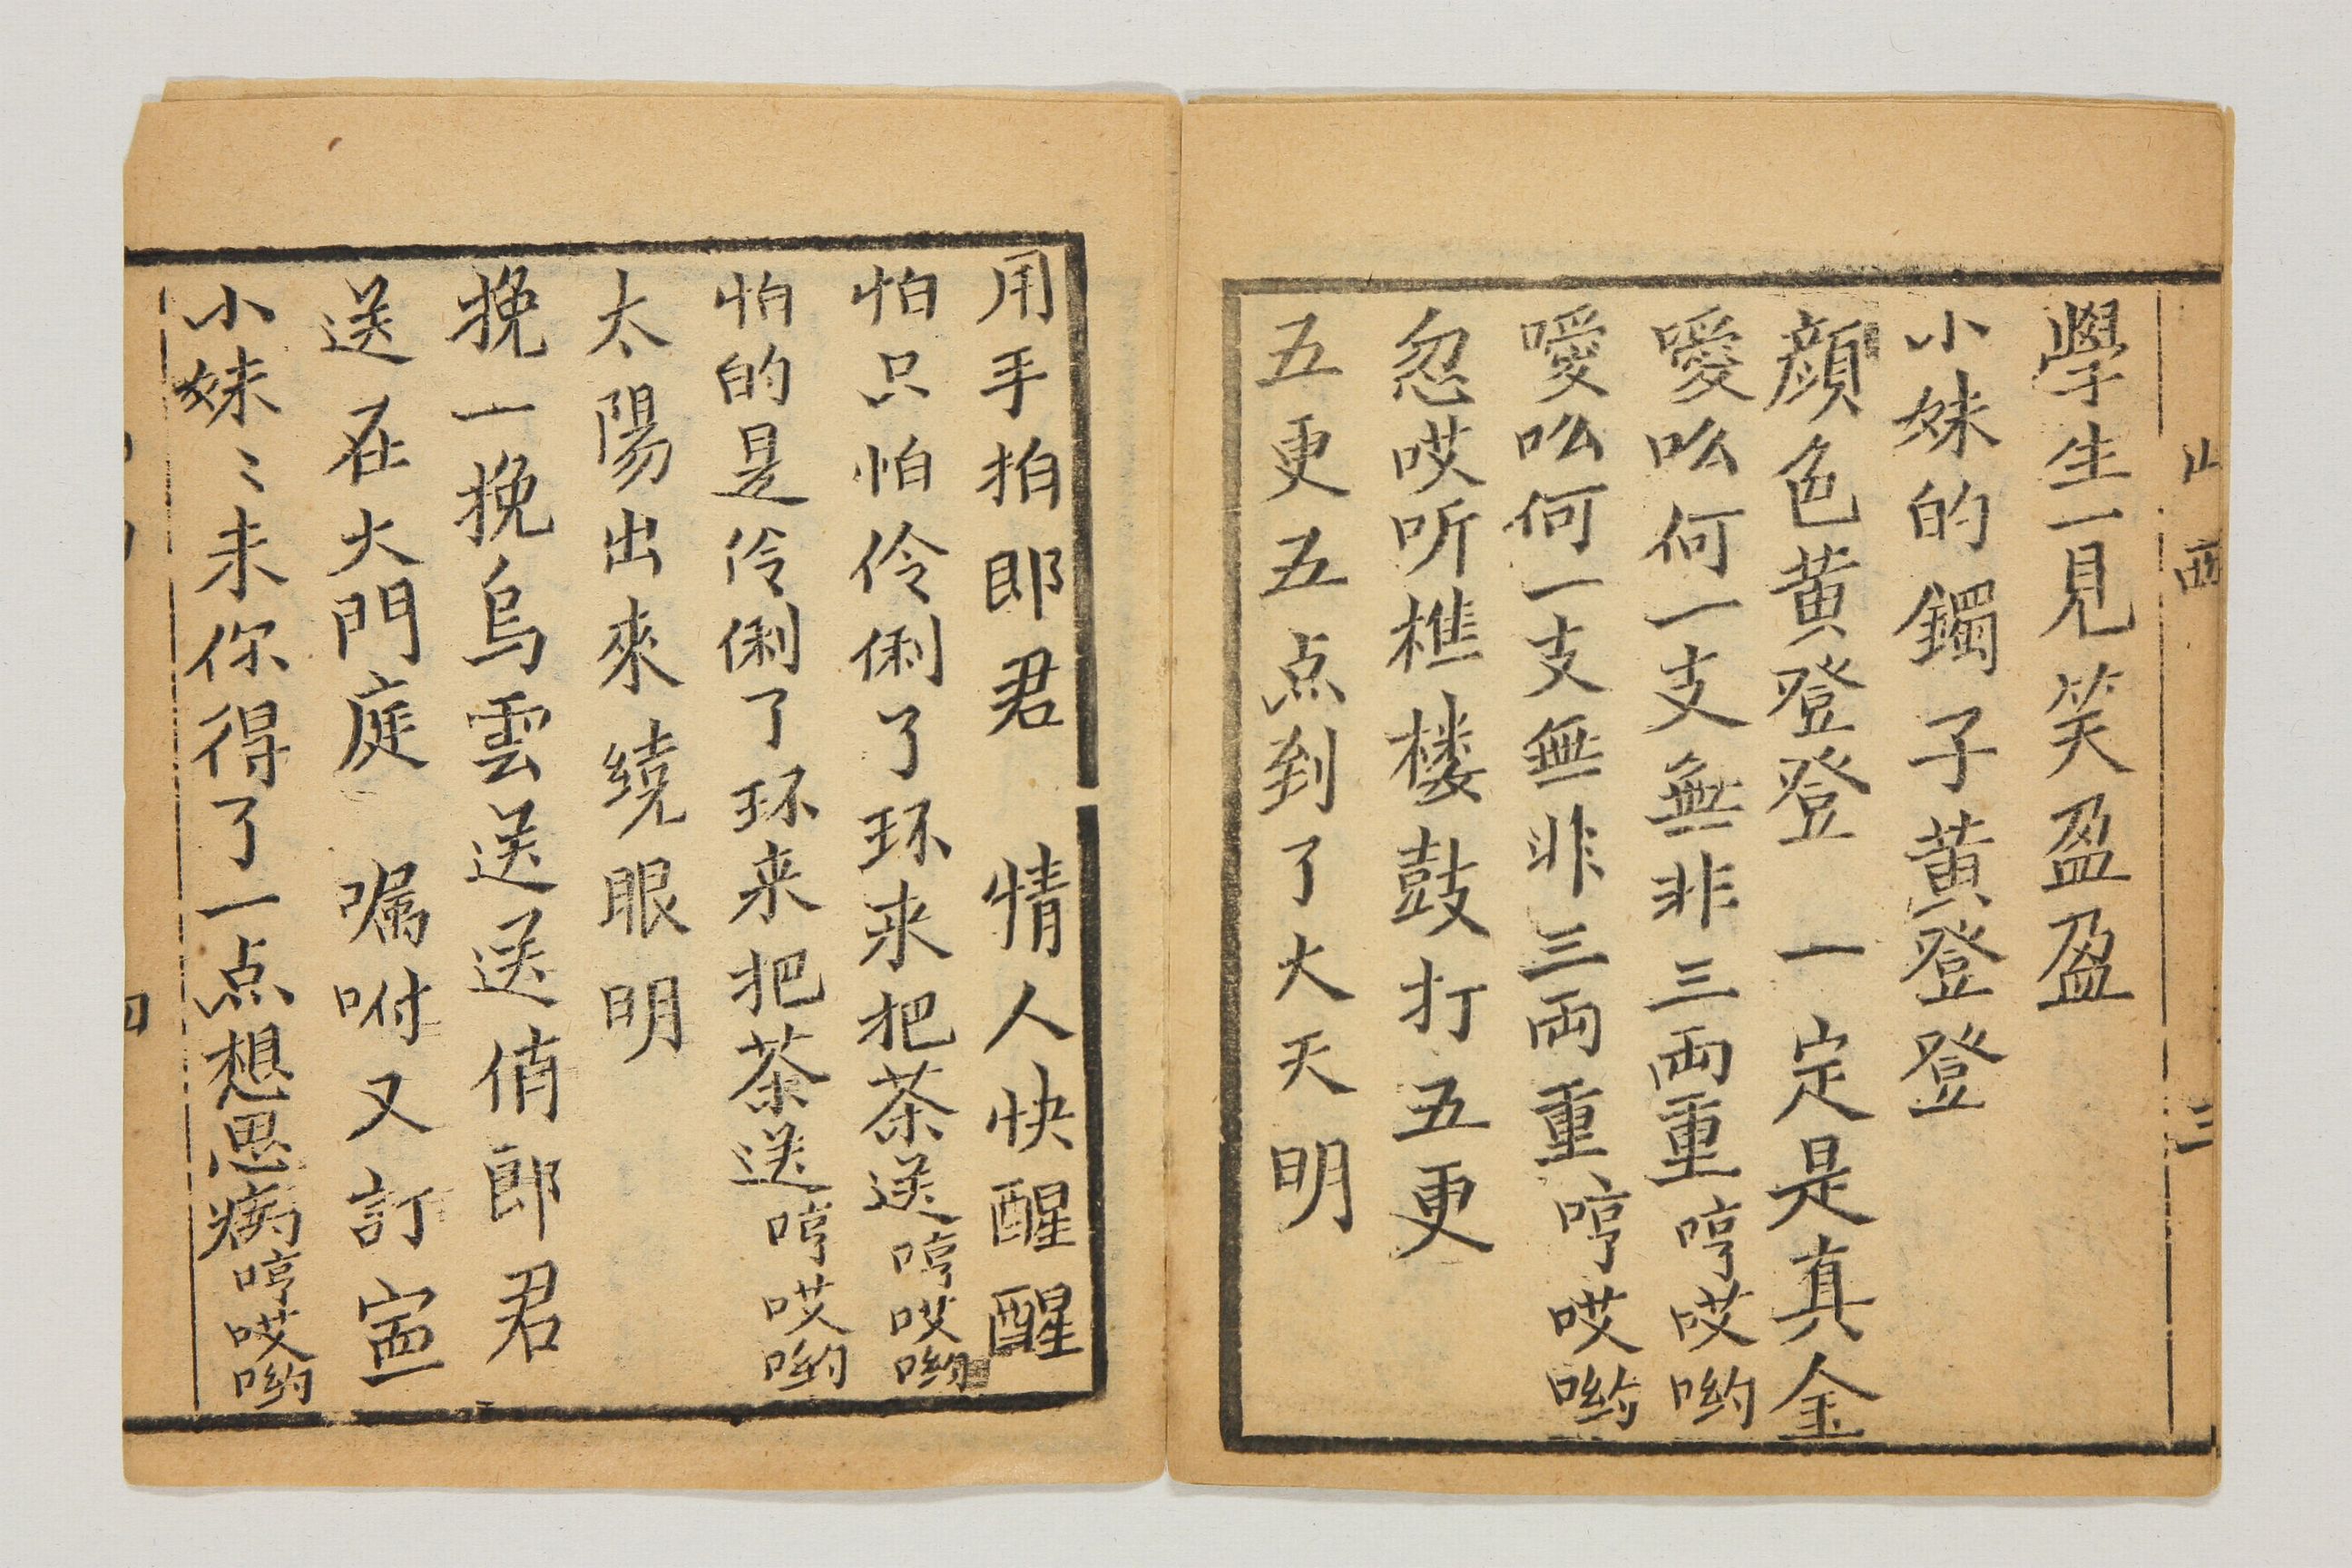 山西 三
學生一見笑盈盈
小妹的鐲子黄登登
顔色黄登登 一定是真金
噯吆何一支無非三両重哼哎喲
噯吆何一支無非三両重哼哎喲
忽哎听樵楼鼓打五更
五更五点到了大天明
用手拍郎君 情人快醒醒
怕只怕伶俐了环来把茶送哼哎喲
怕的是伶俐了环来把茶送哼哎喲
太陽出來繞眼明
挽一挽烏雲送送俏郎君
送在大門庭 嘱咐又訂
小妹〻来你得了一点想思病哼哎喲